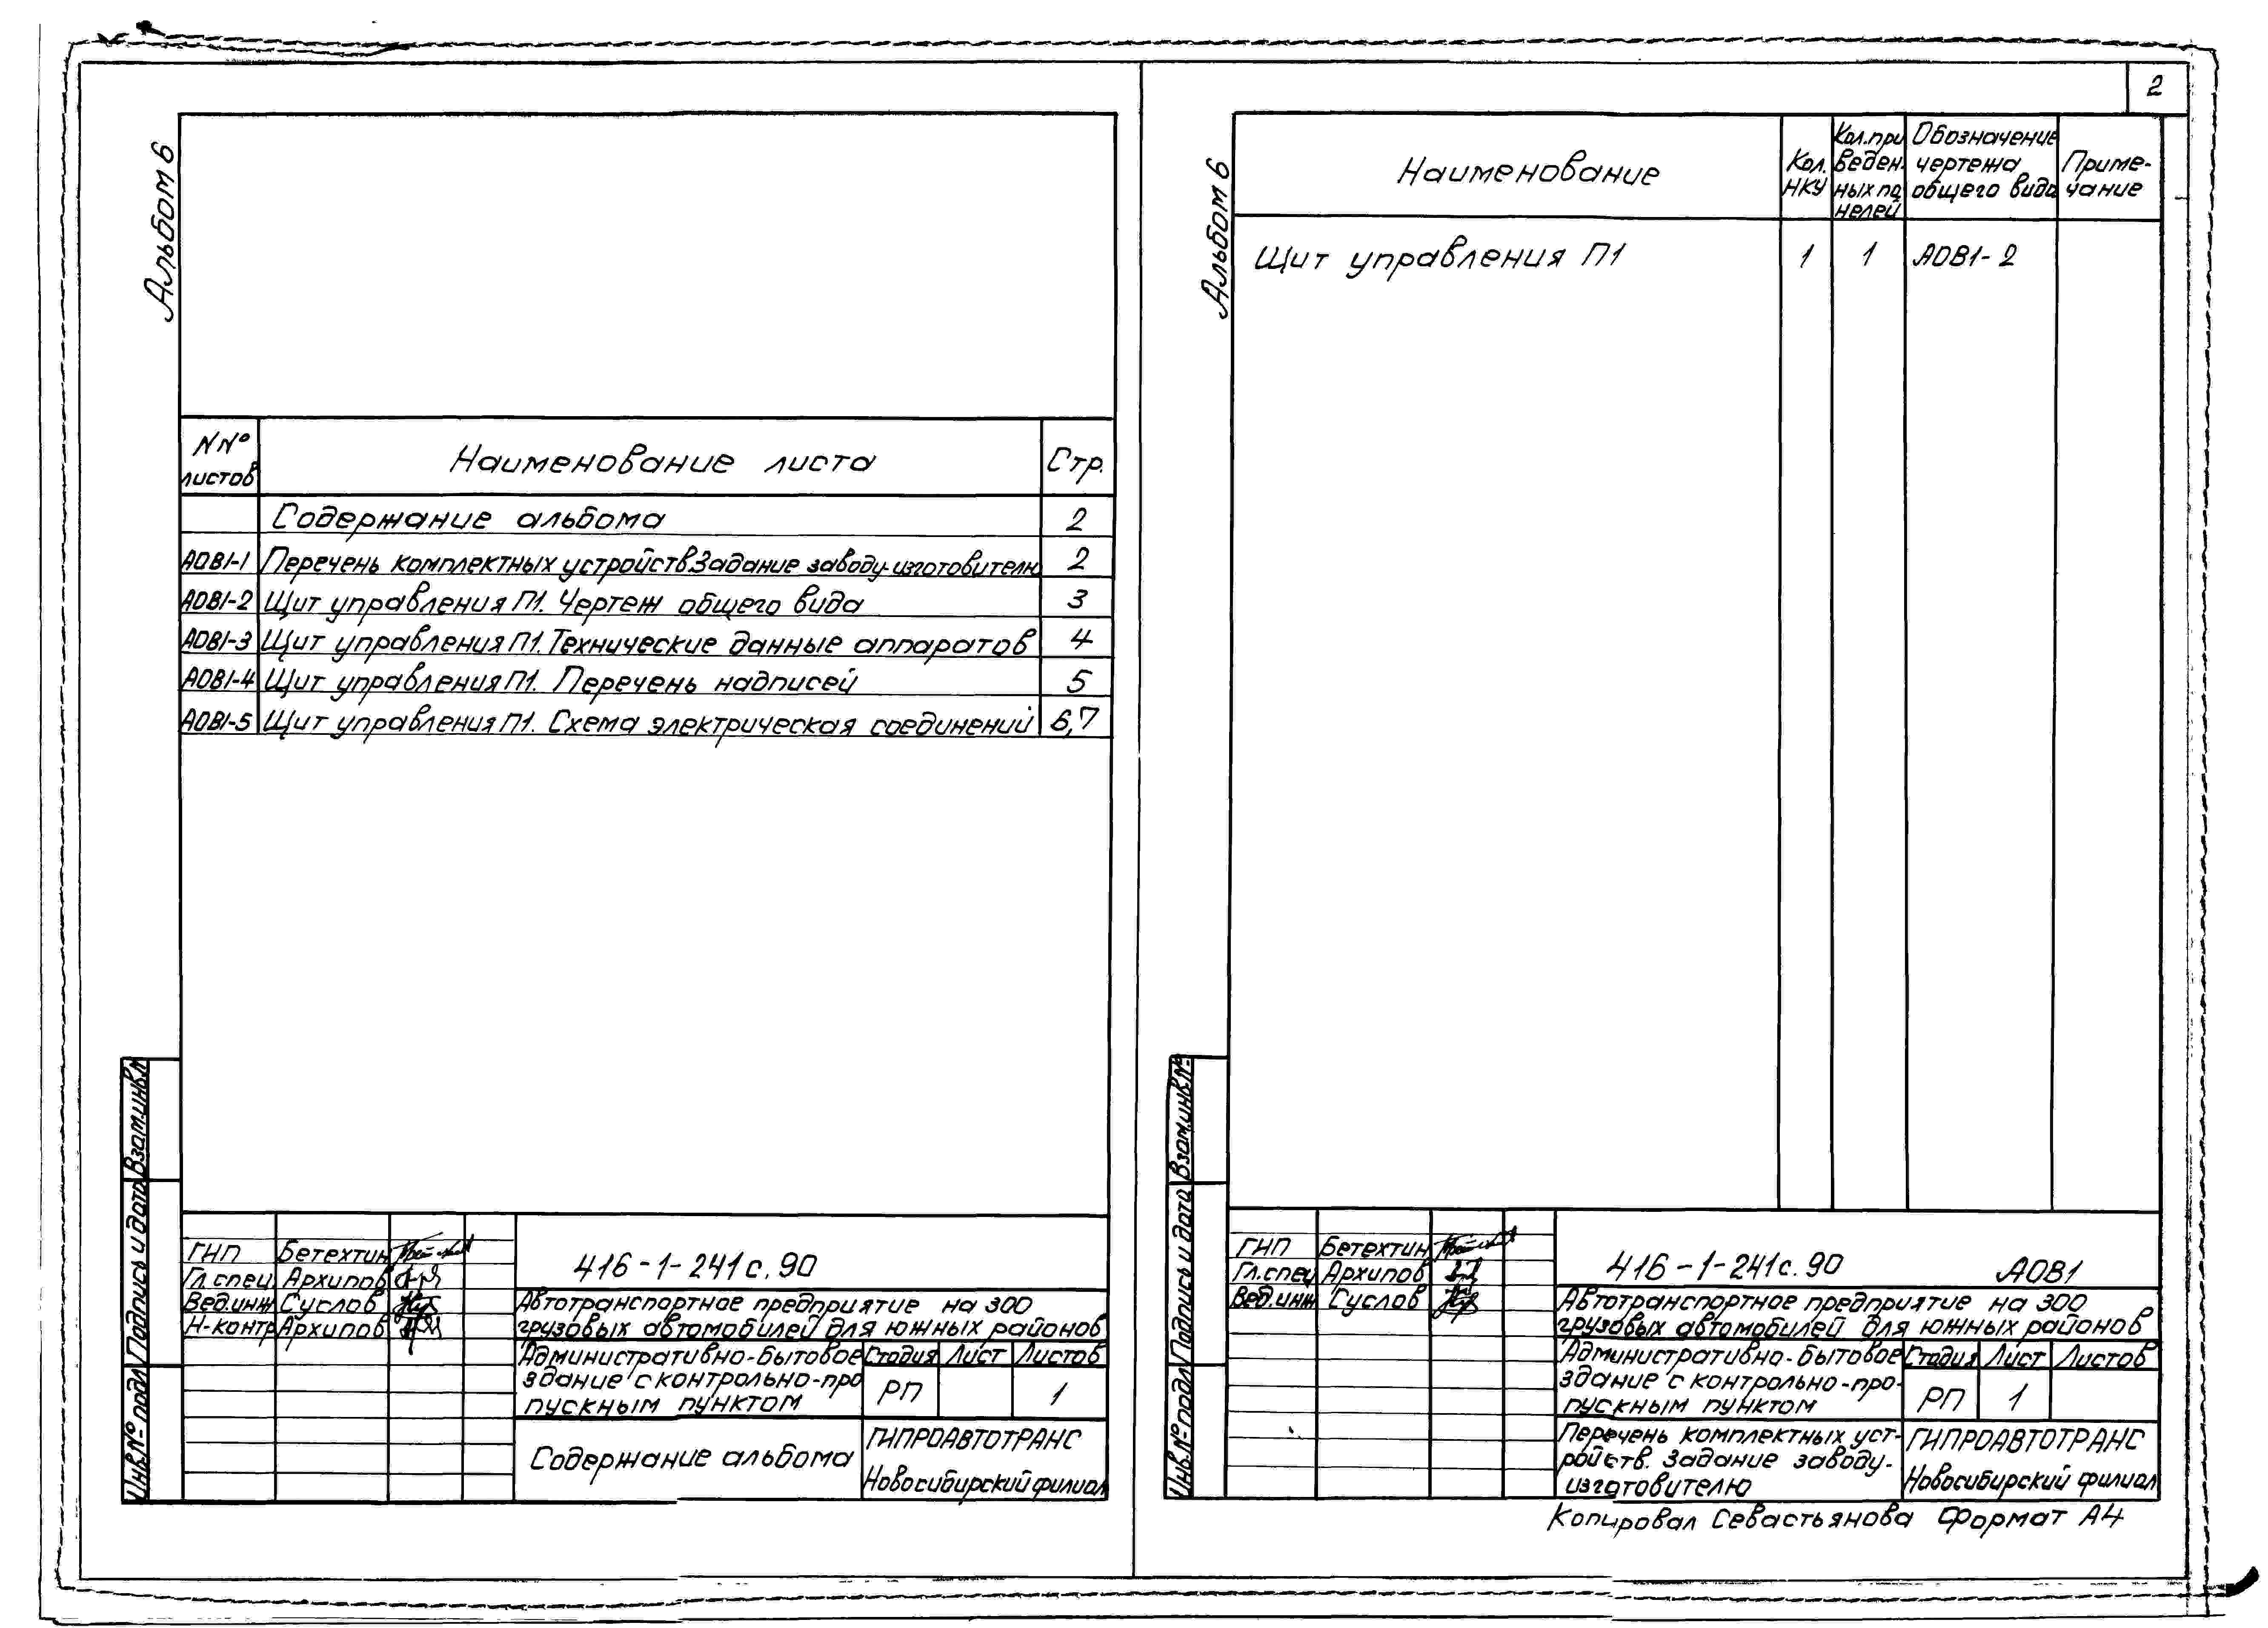 2
Альбом 6
NNº листов Наименование листа Стр.
Содержание альбома 2
АОВ1-1 Перечень комплектных устройств. Задание заводу-изготовителю 2
АОВ1-2 Щит управления П1. Чертеж общего вида 3
АОВ1-3 Щит управления П1. Технические данные аппаратов 4
АОВ1-4 Щит управления П1. Перечень надписей 5
АОВ1-5 Щит управления П1. Схема электрическая соединений 6,7
Взам.инв.№
Подпись и дата
Инв.№ подл
ГИП Бетехтин
Гл.спец. Архипов
Вед.инж Суслов
Н-контр Архипов
416-1-241с.90
Автотранспортное предприятие на 300
грузовых автомобилей для южных районов
Административно-бытовое
здание с контрольно-про
пускным пунктом
Стадия Лист Листов
РП 1
Содержание альбома
ГИПРОАВТОТРАНС
Новосибирский филиал
Альбом 6
Наименование
Кол.
НКУ
Кол.при
веден-
ных па
нелей
Обозначение
чертежа
общего вида
Приме-
чание
Щит управления П1 1 1 АОВ1-2
Взам.инв.№
Подпись и дата
Инв.№ подл
ГИП Бетехтин
Гл.спец Архипов
Вед.инж Суслов
416-1-241с.90 АОВ1
Автотранспортное предприятие на 300
грузовых автомобилей для южных районов
Административно-бытовое
здание с контрольно-про-
пускным пунктом
Стадия Лист Листов
РП 1
Перечень комплектных уст-
ройств. Задание заводу-
изготовителю
ГИПРОАВТОТРАНС
Новосибирский филиал
Копировал Севастьянова Формат А4